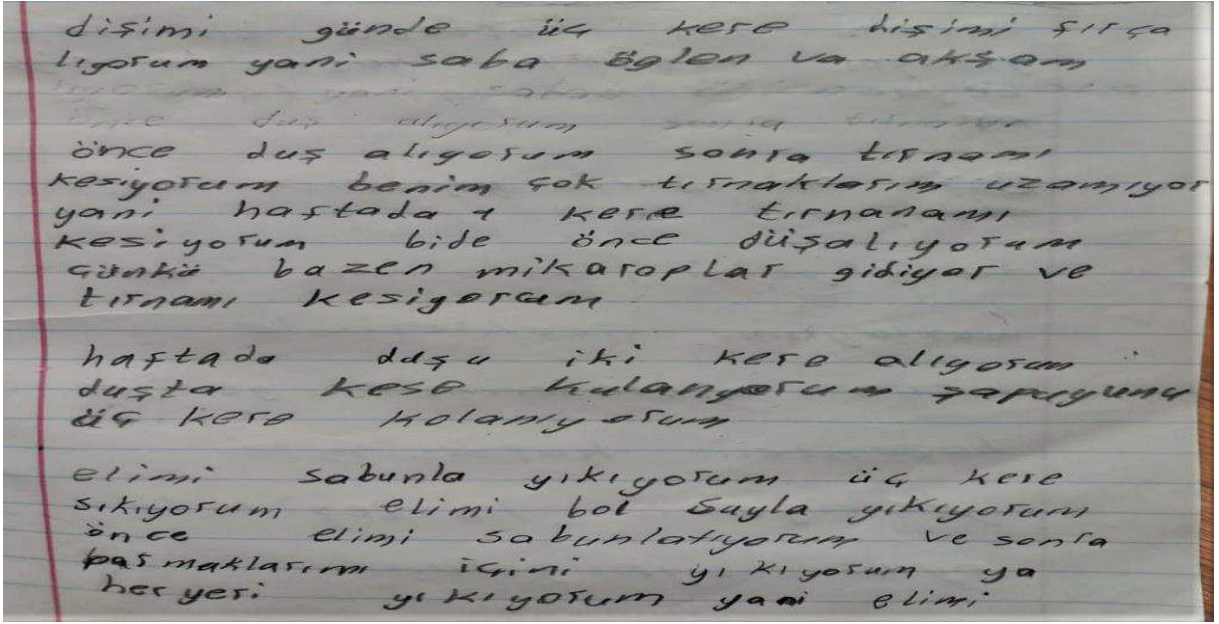 dişimi günde üç kere dişimi fırça
lıyorum yani saba öğlen va akşam
önce duş alıyorum sonra tırnamı
önce duş alıyorum sonra tırnamı
kesiyorum benim çok tırnaklarım uzamıyor
yani haftada 1 kere tırnanamı
kesiyorum bide önce düşalıyorum
çünkü bazen mikaroplar gidiyor ve
tırnamı kesiyorum
haftada duşu iki kere alıyorum
duşta kese kulanıyorum şapuyunu
üç kere kolanıyorum
elimi sabunla yıkıyorum üç kere
sıkıyorum elimi bol suyla yıkıyorum
önce elimi sabunlatıyorum ve sonra
parmaklarımı içini yıkıyorum ya
her yeri yıkıyorum yani elimi